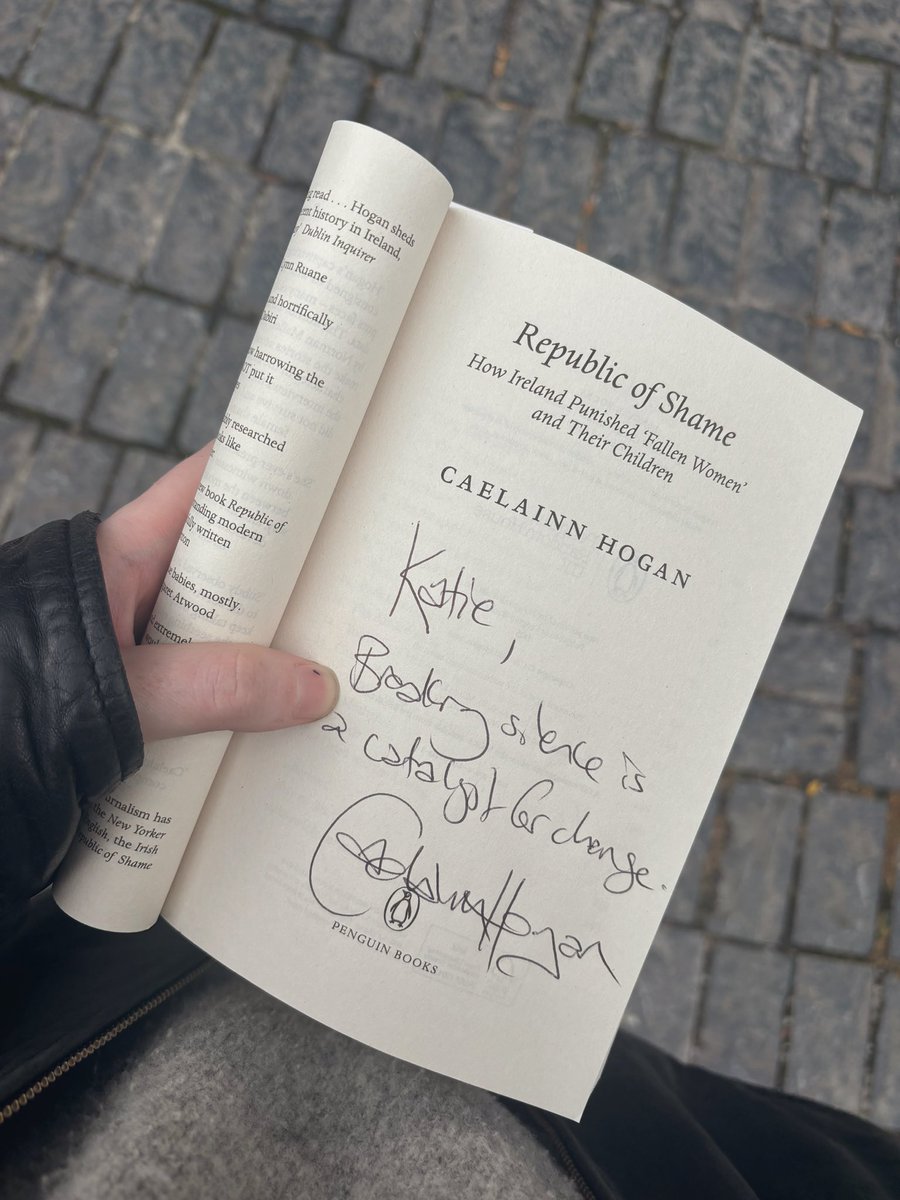 g read . . . Hogan sheds
ent history in Ireland,
Dublin Inquirer
nn Ruane
nd horrifically
w harrowing the
OT put it
ly researched
ks like
ew book Republic of
nding modern
lly written
e babies, mostly.
aret Atwood
extremel
urnalism has
the New Yorker
nglish, the Irish
public of Shame
Republic of Shame
How Ireland Punished ‘Fallen Women’
and Their Children
CAELAINN HOGAN
Katie,
Breaking silence is
a catalyst for change.
Caelainn Hogan
PENGUIN BOOKS